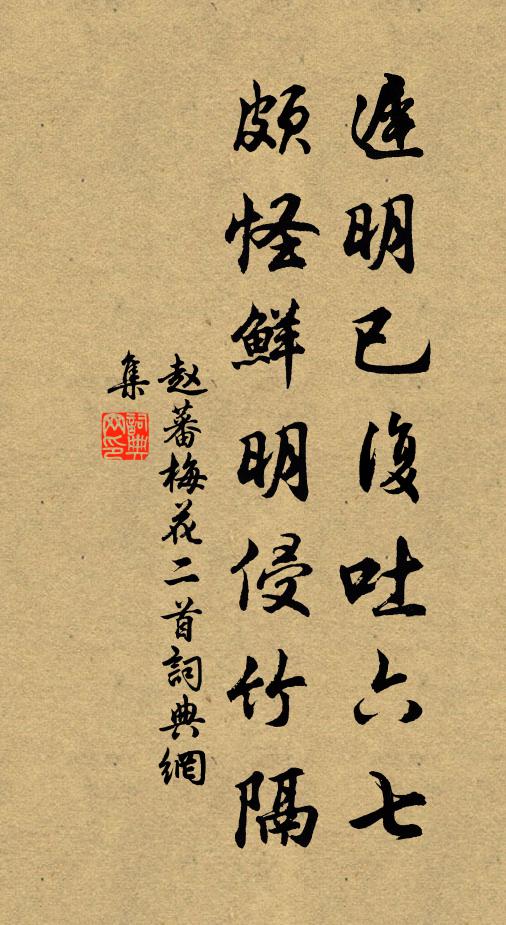 遲明已復吐六七
頗怪鮮明侵竹隔
赵蕃梅花二首詞典網
集
詞典網印